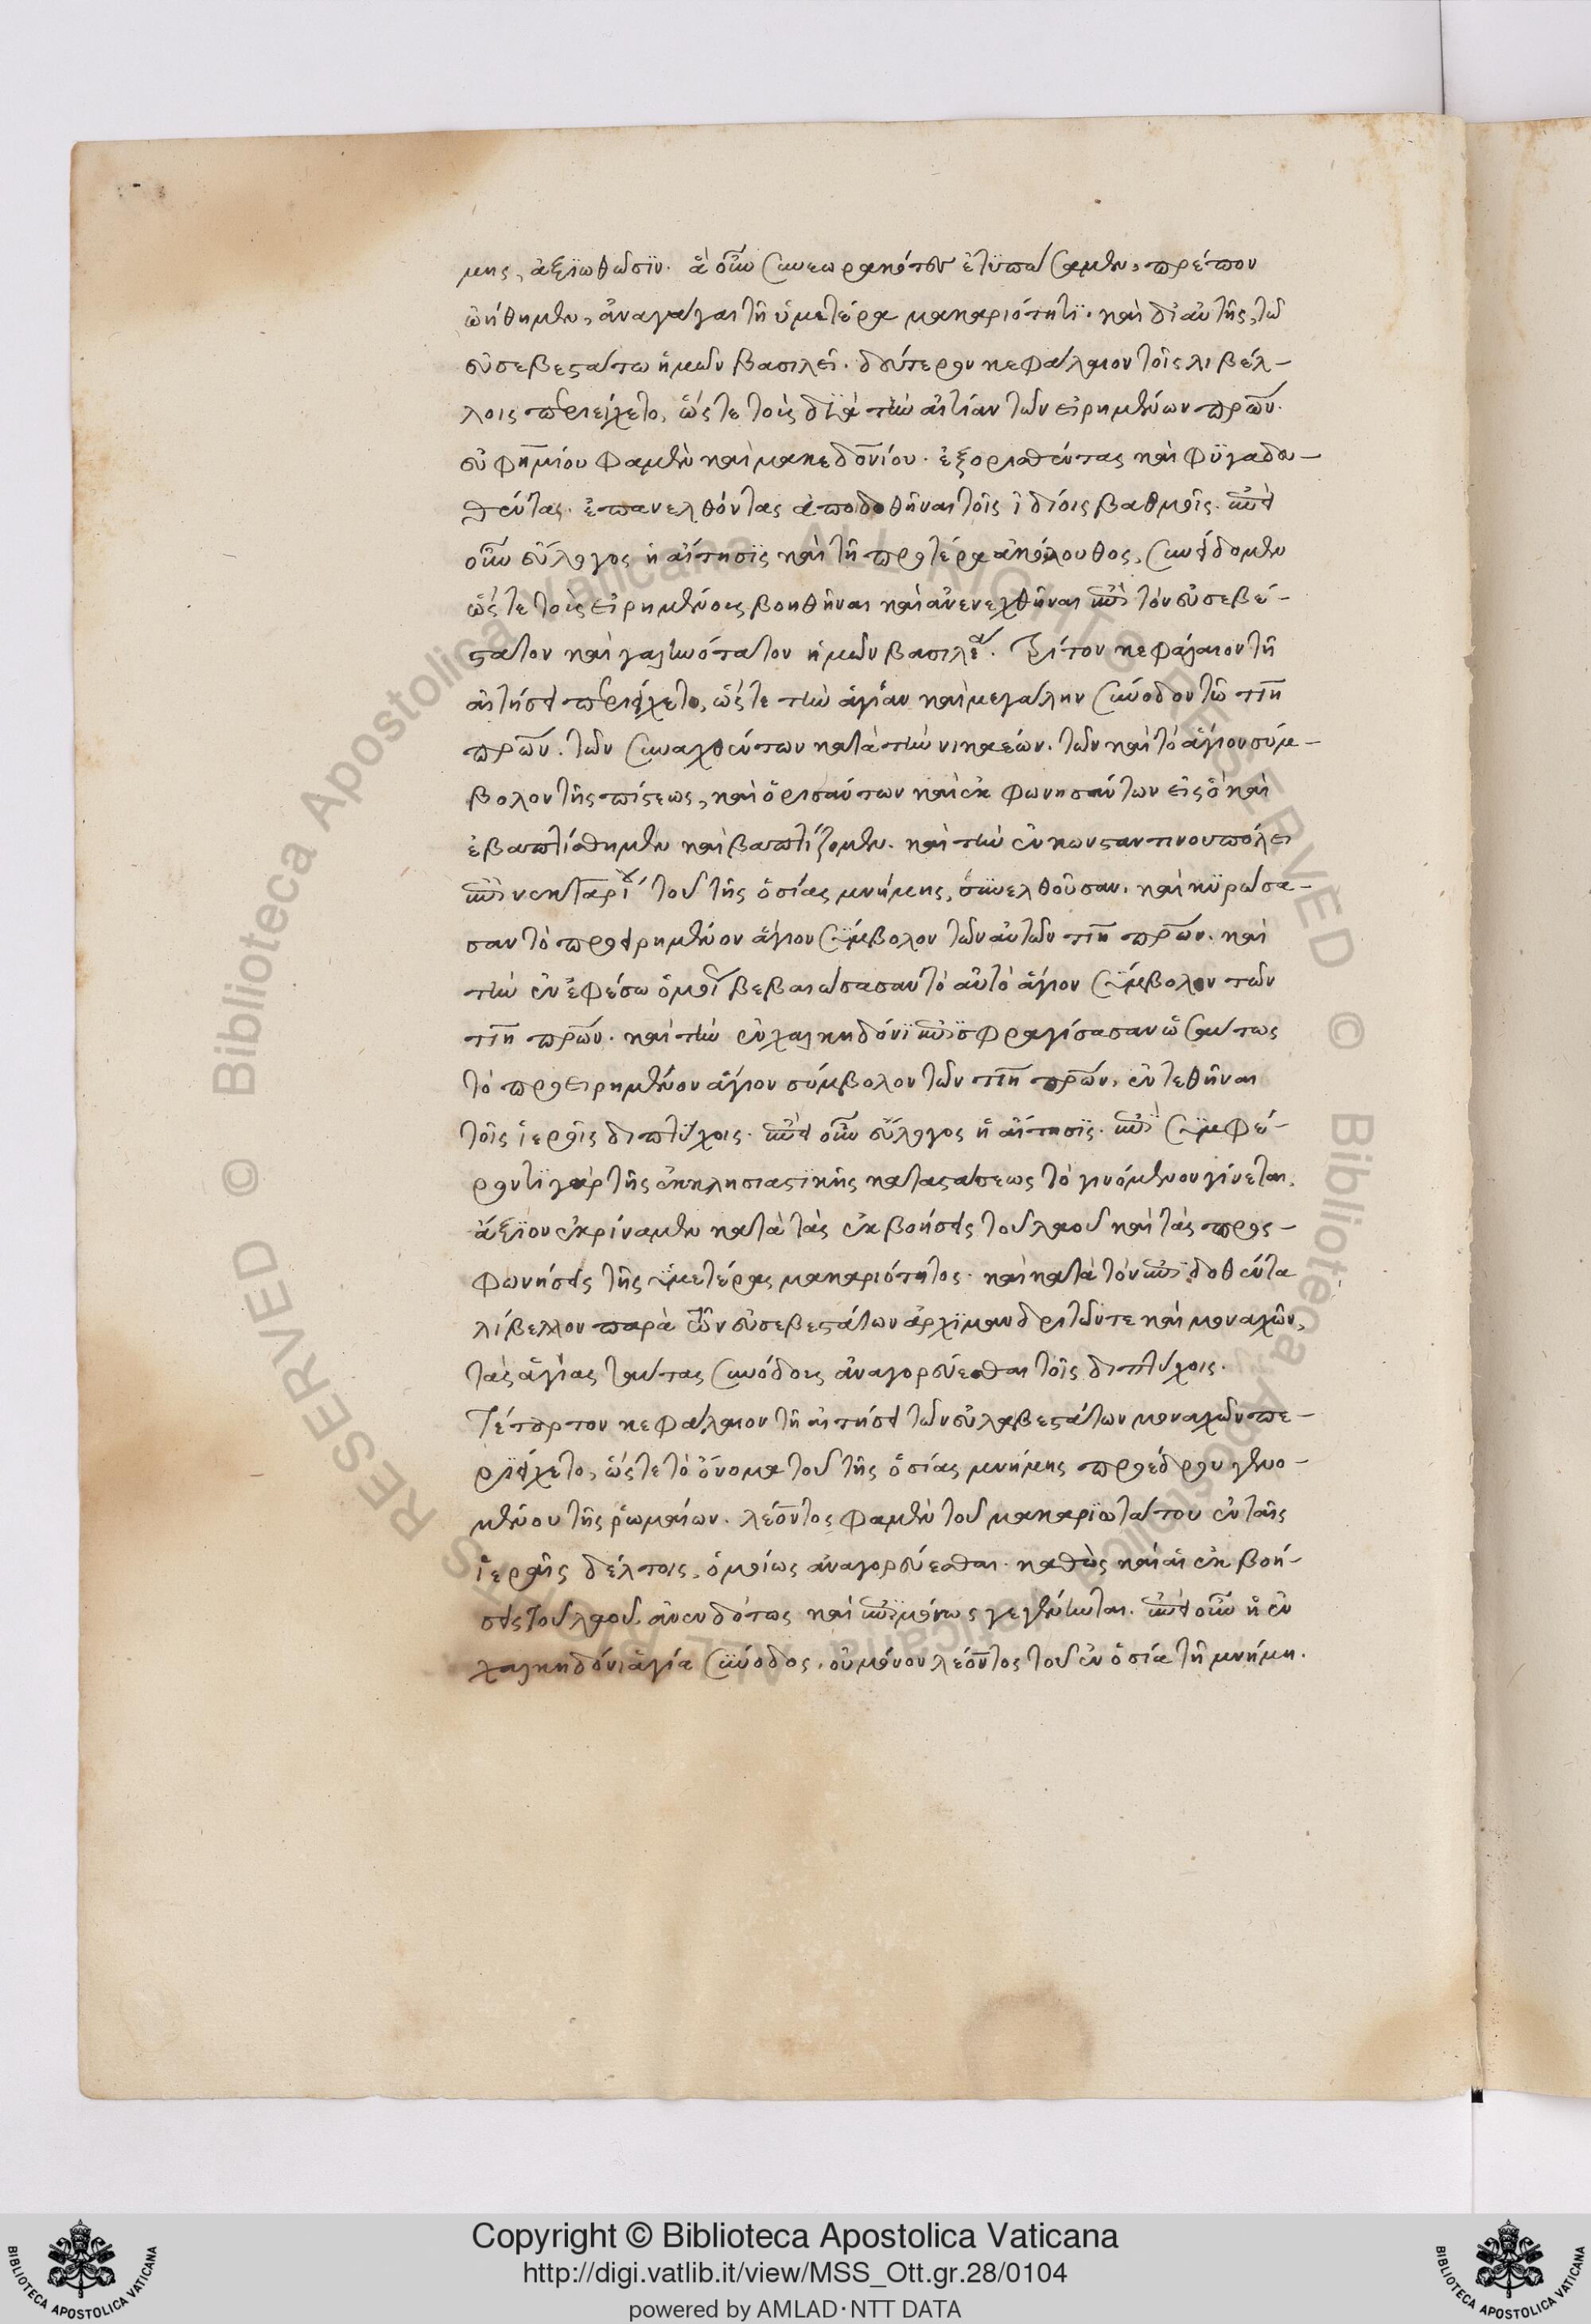 μης, ἀξιωθῶσϊν. ἃ οὖν συνεωρακότες ἐτυπώσαμεν, πρέπον
ᾠήθημεν, ἀναγαγεῖν τῆ ὑμετέρα μακαριότητϊ. καὶ δι' αὐτῆς, τῶ
εὐσεβεστάτω ἡμῶν βασιλεῖ. δεύτερον κεφάλαιον τοῖς λιβέλ-
λοις περιείχετο, ὥςτε τοὺς διὰ τὴν αἰτίαν τῶν εἰρημένων πρῶν.
εὐφημίου φαμὲν καὶ μακεδονίου. ἐξορισθέντας καὶ φϋγαδευ-
θέντας. ἐπανελθόντας ἀποδοθῆναι τοῖς ἰδίοις βαθμοῖς. ἐπεὶ
οὖν εὔλογος ἡ αἴτησϊς καὶ τῆ προτέρα ἀκόλουθος, συνείδομεν
ὥςτε τοὺς εἰρημένους βοηθῆναι καὶ ἀνενεχθῆναι ἐπὶ τὸν εὐσεβέ-
στατον καὶ γαληνότατον ἡμῶν βασιλέα. Τρίτον κεφάλαιον τῆ
αἰτήσει περιείχετο, ὥςτε τὴν ἁγίαν καὶ μεγάλην σύνοδον τῶ τιη
πρῶν. τῶν συναχθέντων κατὰ τὴν νικαέων. τῶν καὶ τὸ ἅγιον σύμ-
βολον τῆς πίστεως, καὶ ὁρισάντων καὶ ἐκφωνησάντων εἰς ὃ καὶ
ἐβαπτίσθημεν καὶ βαπτίζομεν. καὶ τὴν ἐν κωνσταντινουπόλει
ἐπὶ νεκταρίου τοῦ τῆς ὁσίας μνήμης, συνελθοῦσαν. καὶ κϋρώσα-
σαν τὸ προειρημένον ἅγιον σύμβολον τῶν αὐτῶν τιη πρῶν. καὶ
τὴν ἐν ἐφέσω ὁμοῦ βεβαιώσασαν τὸ αὐτὸ ἅγιον σύμβολον τῶν
τιη πρῶν. καὶ τὴν ἐν χαλκηδόνϊ ἐπισφραγίσασαν ὡσαύτως
τὸ προειρημένον ἅγιον σύμβολον τῶν τιη πρῶν, ἐντεθῆναι
τοῖς ἱεροῖς διπτύχοις. ἐπεὶ οὖν εὔλογος ἡ αἴτησϊς. ἐπὶ συμφέ-
ροντϊ γὰρ τῆς ἐκκλησιαστϊκῆς καταστάσεως τὸ γινόμενον γίνεται.
ἄξϊον ἐκρίναμεν κατὰ τὰς ἐκβοήσεις τοῦ λαοῦ καὶ τὰς προς-
φωνήσεις τῆς ὑμετέρας μακαριότητος. καὶ κατὰ τὸν ἐπιδοθέντα
λίβελλον παρὰ τῶν εὐσεβεστάτων ἀρχϊμανδριτῶν τε καὶ μοναχῶν,
τὰς ἁγίας ταύτας συνόδους ἀναγορεύεσθαι τοῖς διπτύχοις.
Τέταρτον κεφάλαιον τῆ αἰτήσει τῶν εὐλαβεστάτων μοναχῶν πε-
ρϊείχετο, ὥςτε τὸ ὄνομα τοῦ τῆς ὁσίας μνήμης προέδρου γενο-
μένου τῆς ῥωμαίων. λέοντος φαμὲν τοῦ μακαρϊωτάτου ἐν ταῖς
ἱεραῖς δέλτοις, ὁμοίως ἀναγορεύεσθαι. καθὼς καὶ αἱ ἐκβοή-
σεις τοῦ λαοῦ ἀνενδότως καὶ ἐπιμόνως γεγένηνται. ἐπεὶ οὖν ἡ ἐν
χαλκηδόνι ἁγία σύνοδος, οὐ μόνον λέοντος τοῦ ἐν ὁσία τῆ μνήμη.